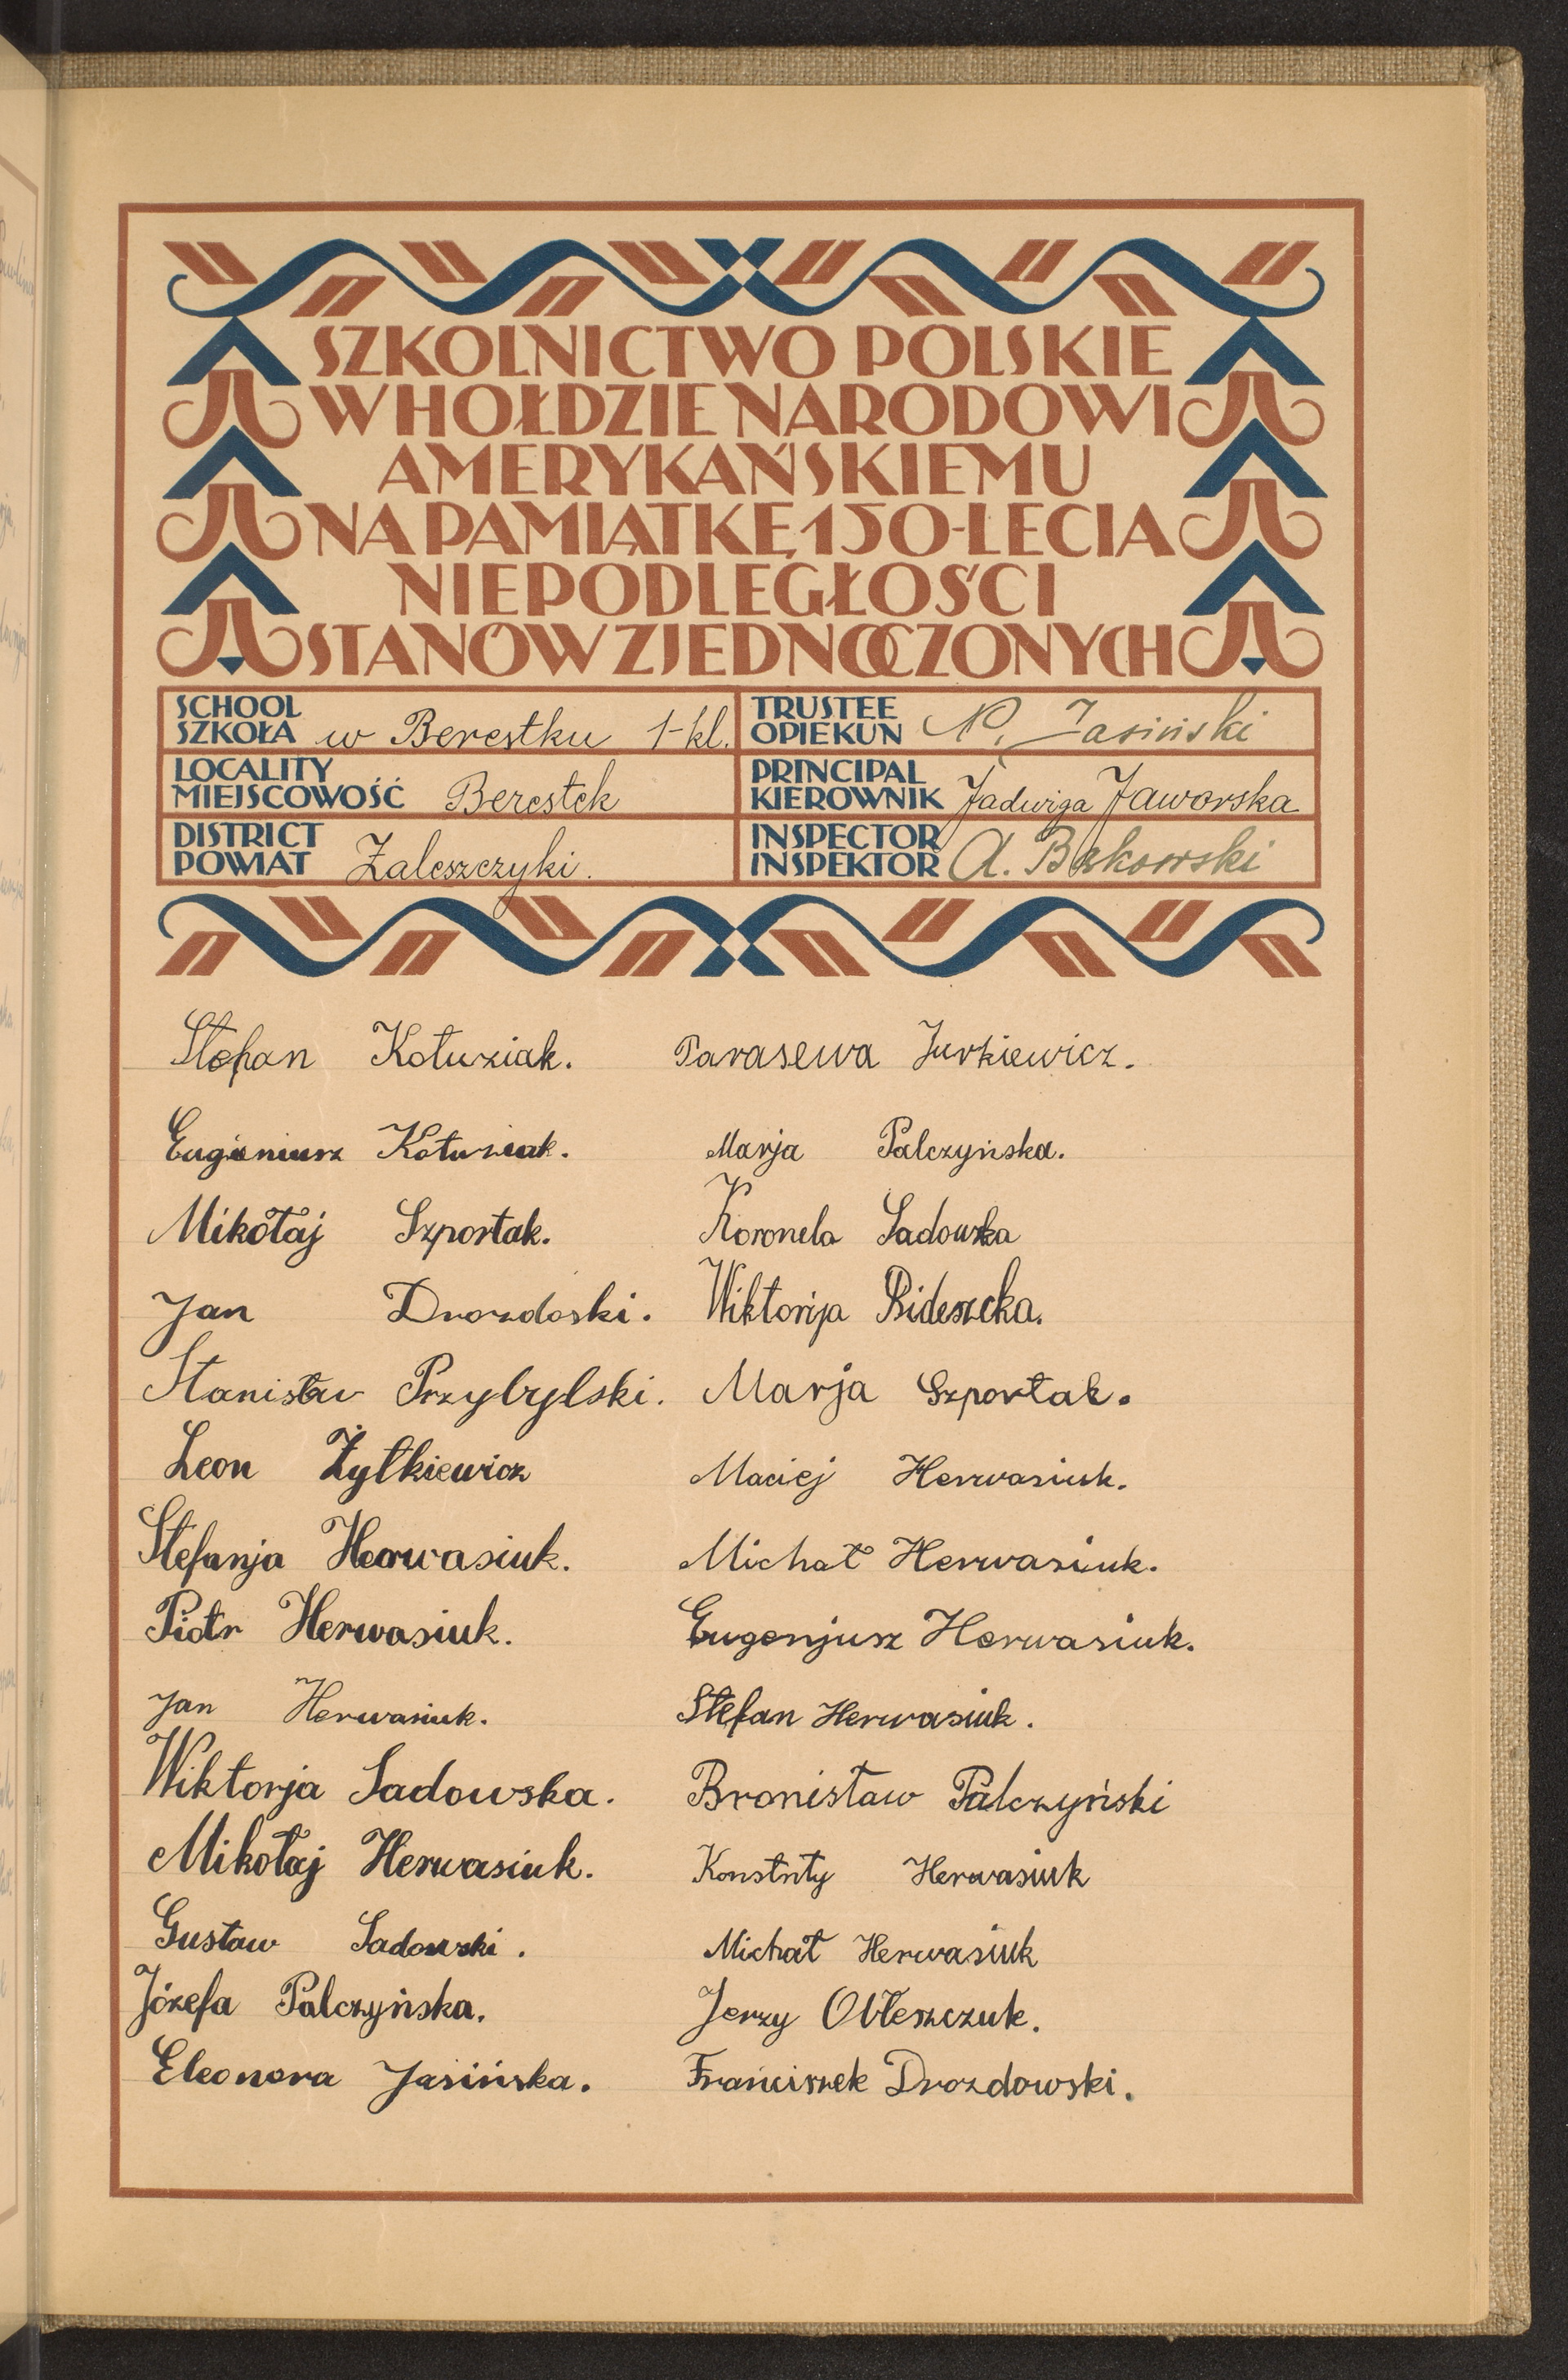 SZKOLNICTWO POLSKIE
W HOŁDZIE NARODOWI
AMERYKAŃSKIEMU
NA PAMIĄTKĘ 150-LECIA
NIEPODLEGŁOŚCI
STANÓW ZJEDNOCZONYCH
SCHOOL
SZKOŁA w Berestku 1-kl.
TRUSTEE
OPIEKUN N. Jasiński
LOCALITY
MIEJSCOWOŚĆ Berestek
PRINCIPAL
KIEROWNIK Jadwiga Jaworska
DISTRICT
POWIAT Zaleszczyki.
INSPECTOR
INSPEKTOR A. Bąkowski
Stefan Kotuziak. Parasewa Jurkiewicz.
Eugieniusz Kotuziak. Marja Palczyńska.
Mikołaj Szportak. Koronela Sadowska
Jan Drozdoski. Wiktorija Bideszcka.
Stanisław Przybylski. Marja Szportak.
Leon Żyłkiewicz Maciej Herwasiuk.
Stefanja Herwasiuk. Michał Herwasiuk.
Piotr Herwasiuk. Eugenjusz Herwasiuk.
Jan Herwasiuk. Stefan Herwasiuk.
Wiktorja Sadowska. Bronisław Palczyński
Mikołaj Herwasiuk. Konstnty Herwasiuk
Gustaw Sadowski. Michał Herwasiuk
Józefa Palczyńska. Jerzy Obłeszczuk.
Eleonora Jasińska. Franciszek Drozdowski.